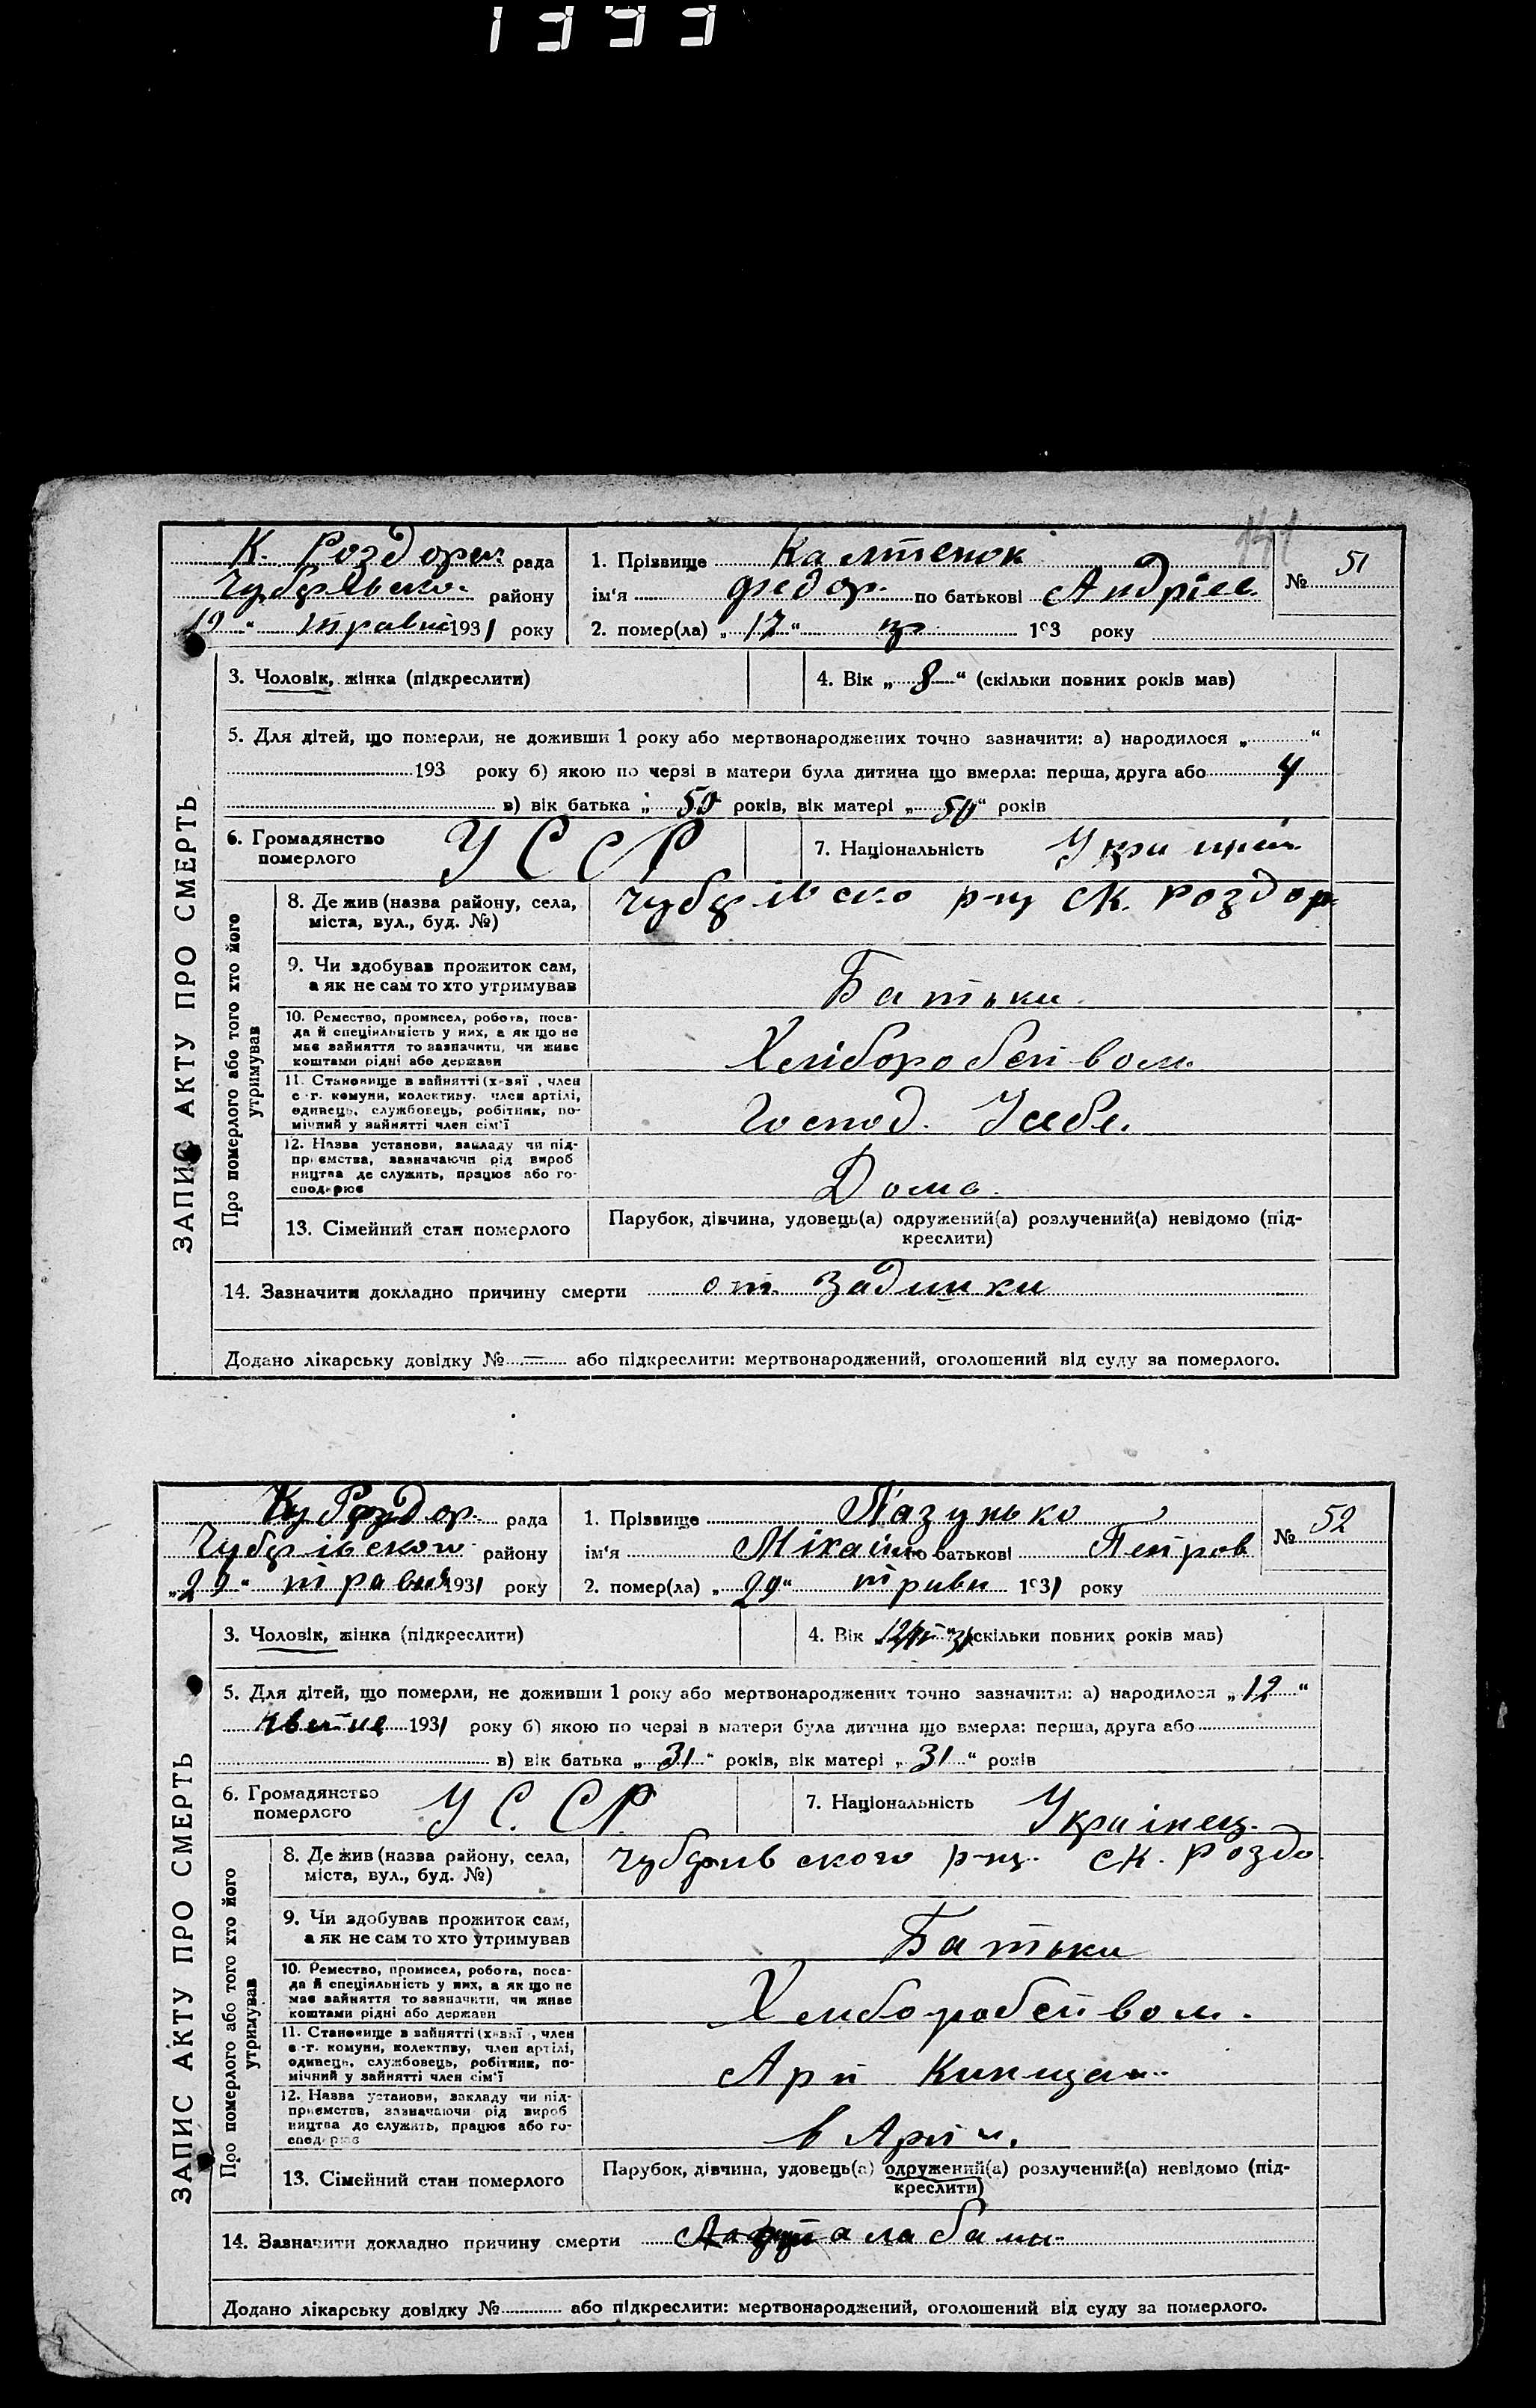 1393
141
К. Роздори рада
Чубарьско. району
19 " травня 1931 року
1. Прізвище Калтенок
ім'я Федор. по батькові Андрієв.
№ 51
2. помер(ла) „ 17 " тр 193 року
3. Чоловік, жінка (підкреслити)
4. Вік „ 8 " (скільки повних років мав)
5. Для дітей, що померли, не доживши 1 року або мертвонароджених точно зазначити: а) народилося „ "
193 року б) якою по черзі в матери була дитина що вмерла: перша, друга або 4
в) вік батька „ 50 років, вік матері „ 50 " років
6. Громадянство померлого У С С Р
7. Національність
8. Де жив (назва району, села, міста, вул., буд. №) р-ну СК. Роздор
9. Чи здобував прожиток сам, а як не сам то хто утримував Батьки
10. Ремество, промисел, робота, поса-
да й спеціяльність у них, а як що не
має зайняття то зазначити, чи живе
коштами рідні або держави Хліборобством
11. Становище в зайнятті (х-зяї , член
с.-г. комуни, колективу, член артілі,
одинець, службовець, робітник, по-
мічний у зайнятті член сім'ї Господ. Усебе.
12. Назва установи, закладу чи під-
приємства, зазначаючи рід вироб
ництва де служить, працює або го-
сподарює Дома.
13. Сімейний стан померлого
Парубок, дівчина, удовець(а) одружений(а) розлучений(а) невідомо (під-
креслити)
14. Зазначити докладно причину смерти от. Задишки
Додано лікарську довідку № — або підкреслити: мертвонароджений, оголошений від суду за померлого.
ЗАПИС АКТУ ПРО СМЕРТЬ
Про померлого або того хто його утримував
рада
Чубарівського району
„29 " травня 1931 року
1. Прізвище Пазунько
ім'я Міхайло по батькові Петров
№ 52
2. помер(ла) „ 29 " травн 1931 року
3. Чоловік, жінка (підкреслити)
4. Вік (скільки повних років мав)
5. Для дітей, що померли, не доживши 1 року або мертвонароджених точно зазначити: а) народилося „ 12 "
квітня 1931 року б) якою по черзі в матери була дитина що вмерла: перша, друга або
в) вік батька „ 31 " років, вік матері „ 31 " років
6. Громадянство померлого У С. С Р.
7. Національність Українец.
8. Де жив (назва району, села, міста, вул., буд. №) ского р-ну. СК. Роздо
9. Чи здобував прожиток сам, а як не сам то хто утримував Батьки
10. Ремество, промисел, робота, поса-
да й спеціяльність у них, а як що не
має зайняття то зазначити, чи живе
коштами рідні або держави Хліборобством.
11. Становище в зайнятті (х-зяї , член
с.-г. комуни, колективу, член артілі,
одинець, службовець, робітник, по-
мічний у зайнятті член сім'ї
12. Назва установи, закладу чи під-
приємства, зазначаючи рід вироб
ництва де служить, працює або го-
сподарює в Арті.
13. Сімейний стан померлого
Парубок, дівчина, удовець(а) одружений(а) розлучений(а) невідомо (під-
креслити)
14. Зазначити докладно причину смерти
Додано лікарську довідку № або підкреслити: мертвонароджений, оголошений від суду за померлого.
ЗАПИС АКТУ ПРО СМЕРТЬ
Про померлого або того хто його утримував